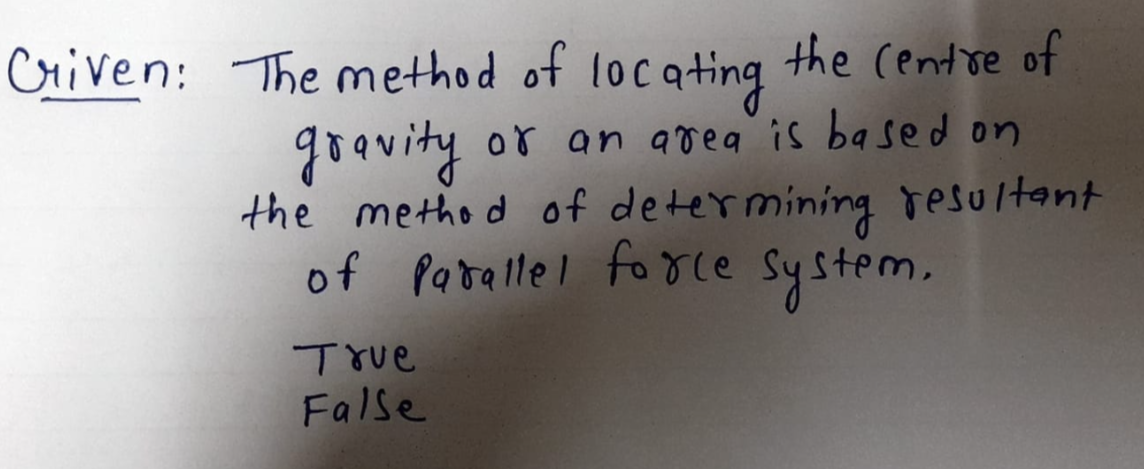 Given: The method of locating the centre of
gravity or an area is based on
the method of determining resultant
of Parallel force system.
True
False